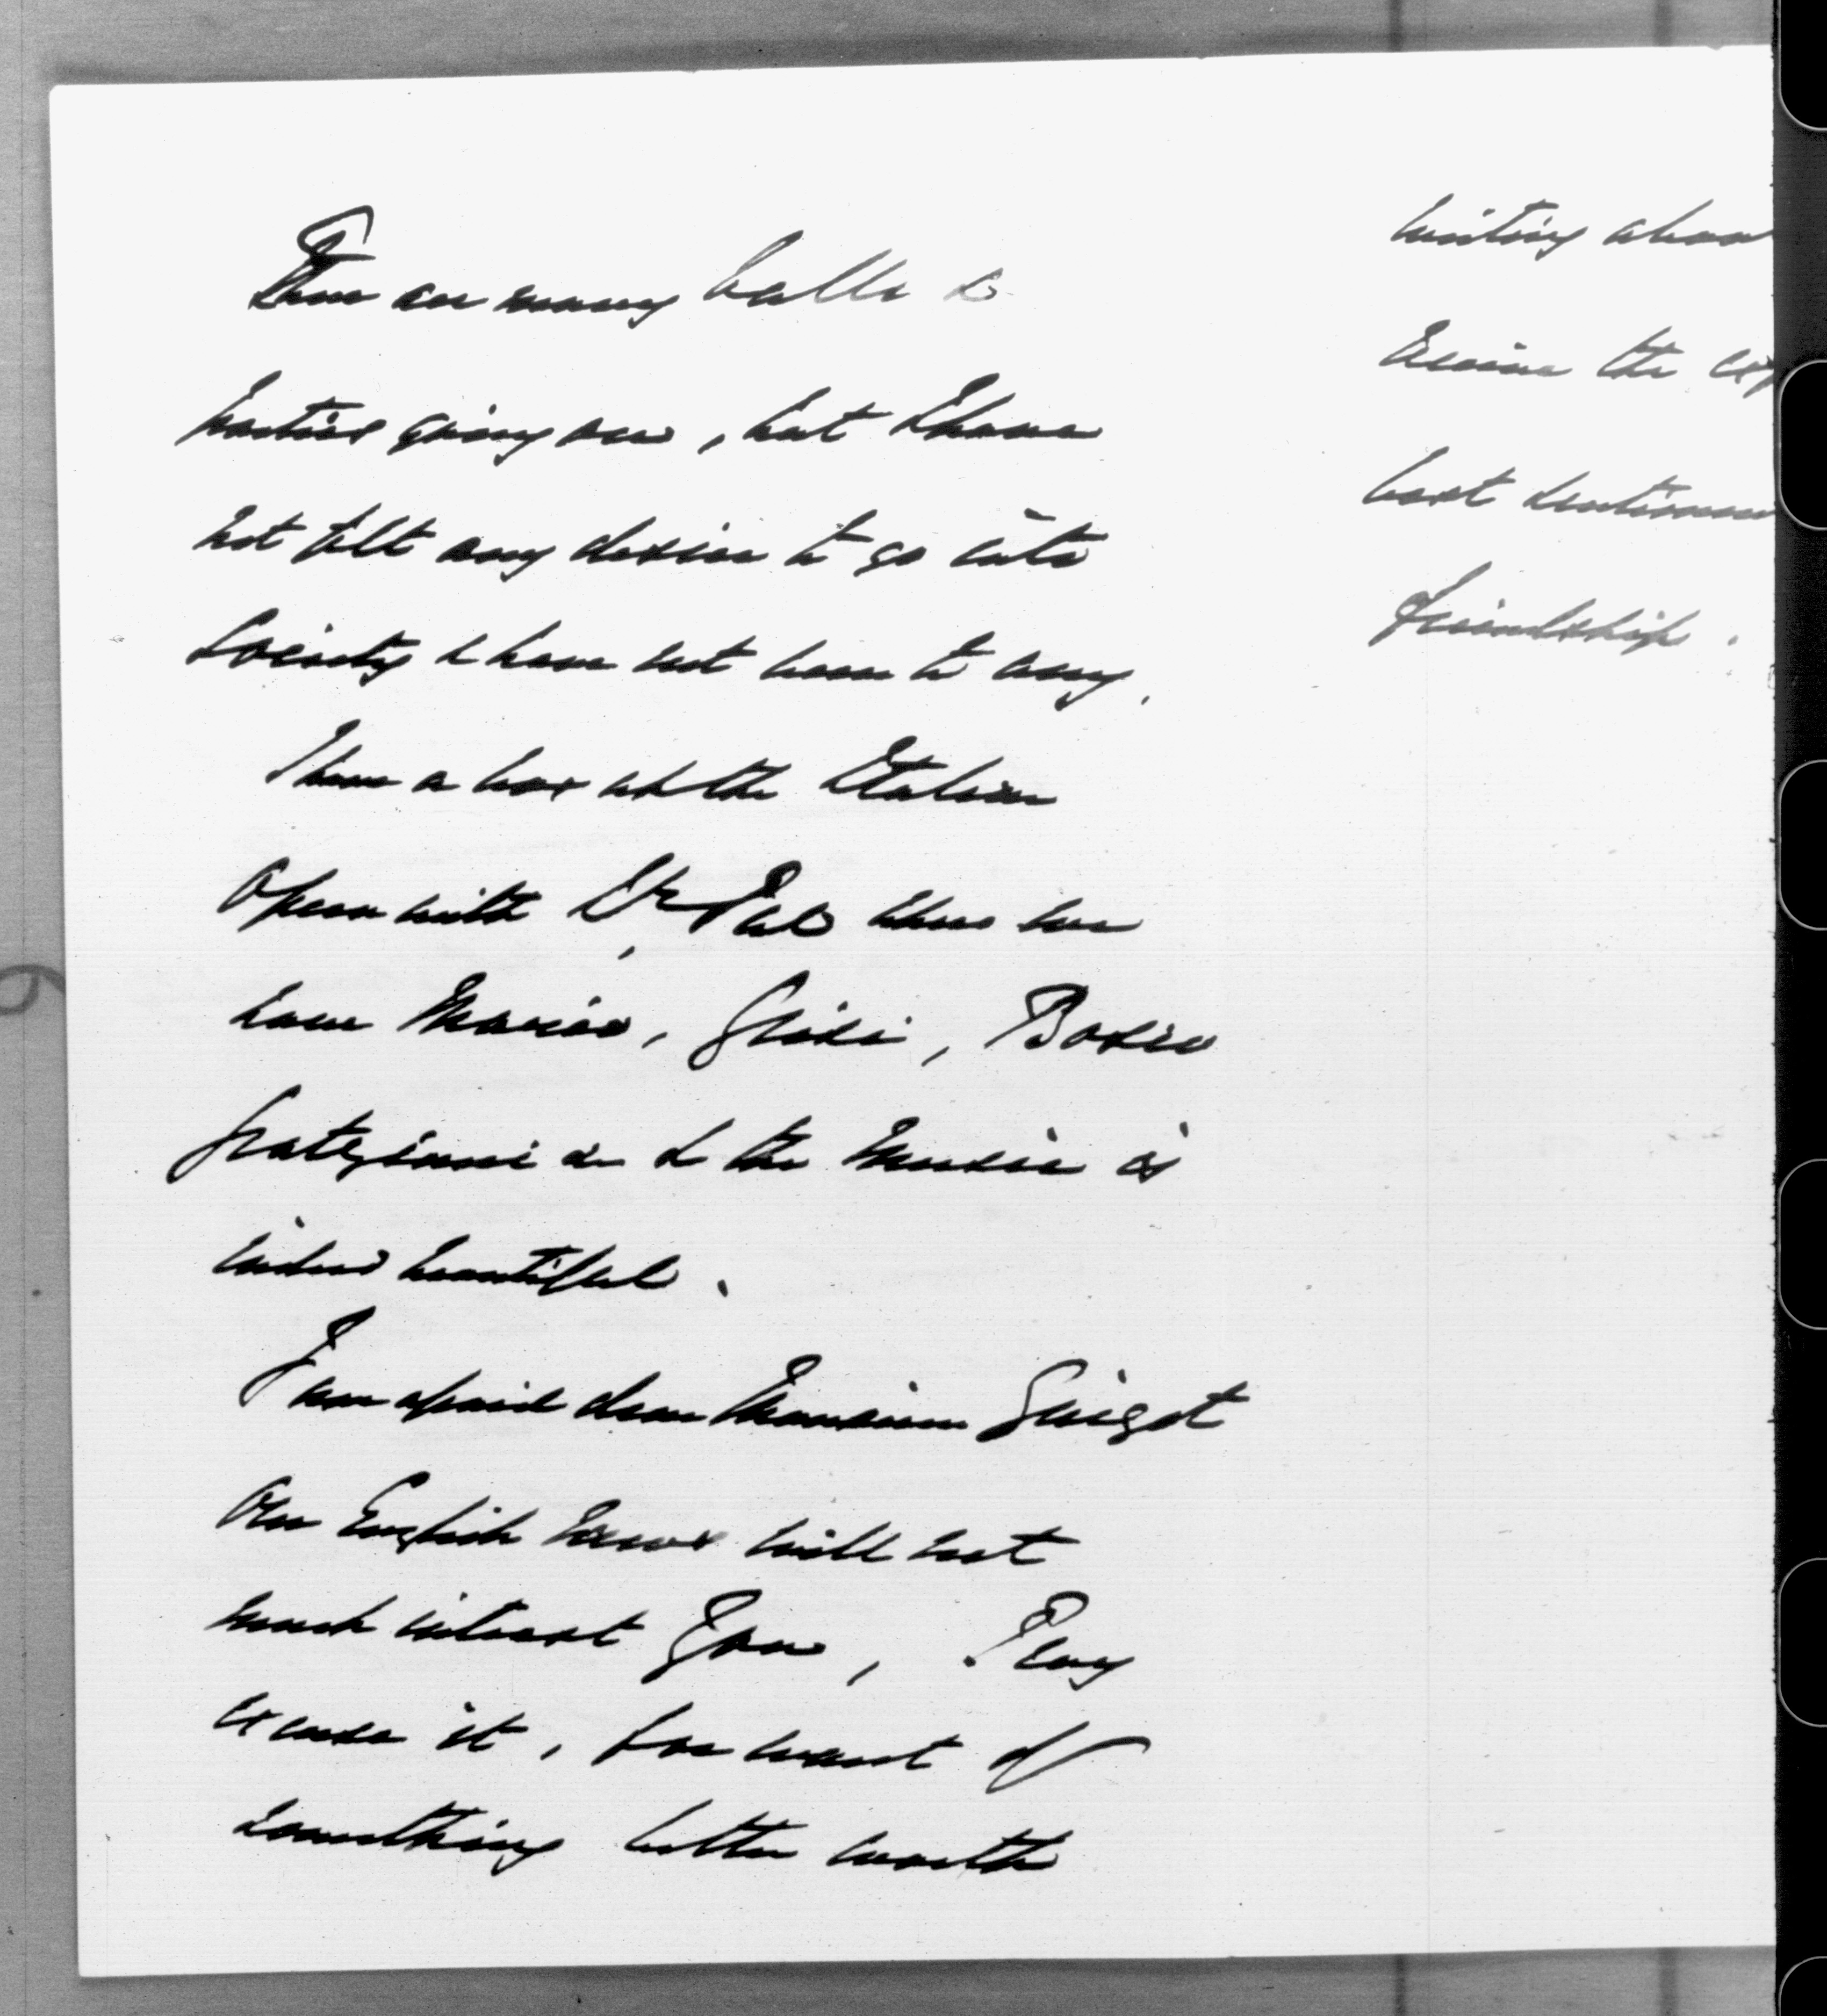 There are many balls &
parties going on, but I have
not felt any desire to go into
Society & have not been to any.
I have a box at the Italian
Opera with Lr Pal where we
have Mario, Grisi, Bosio
Gratziani & & the Music is
indeed beautiful.
I am afraid dear Monsieur Guizot
our English news will not
much interest you, Pray
excuse it, for want of
something better worth
writing abou
Receive the ex
best sentimen
friendship.